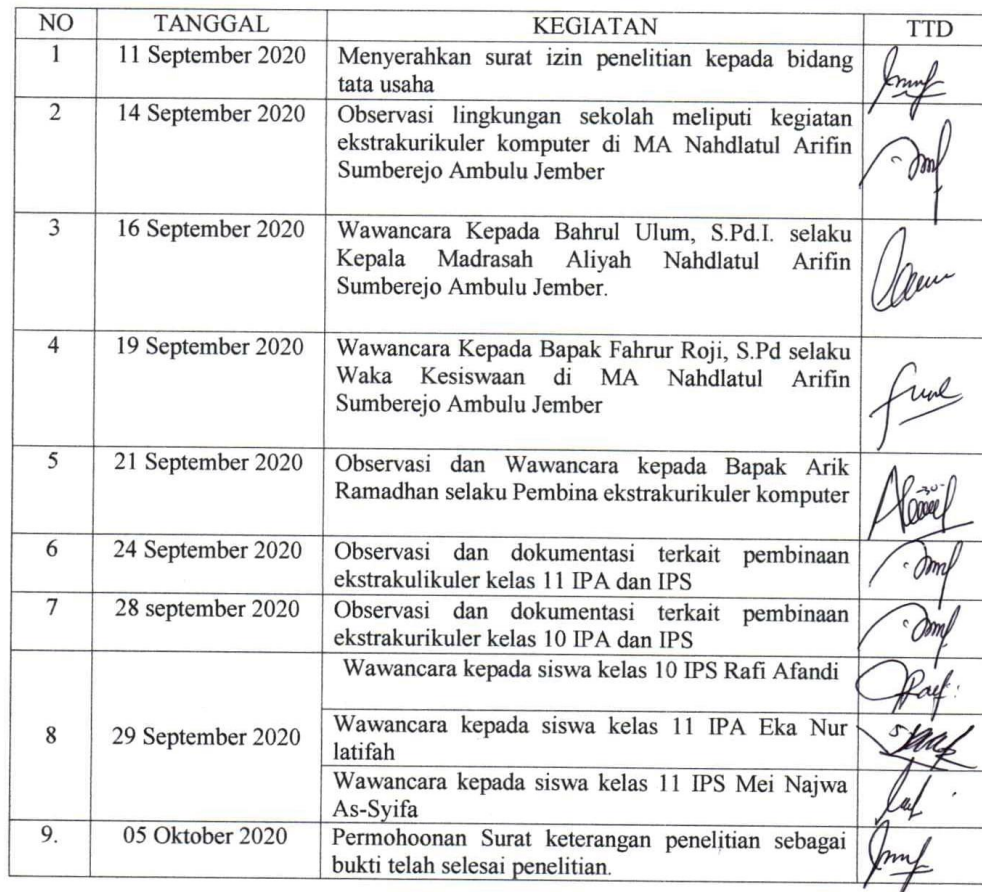 NO TANGGAL KEGIATAN TTD
1 11 September 2020 Menyerahkan surat izin penelitian kepada bidang
tata usaha
2 14 September 2020 Observasi lingkungan sekolah meliputi kegiatan
ekstrakurikuler komputer di MA Nahdlatul Arifin
Sumberejo Ambulu Jember
3 16 September 2020 Wawancara Kepada Bahrul Ulum, S.Pd.I. selaku
Kepala Madrasah Aliyah Nahdlatul Arifin
Sumberejo Ambulu Jember.
4 19 September 2020 Wawancara Kepada Bapak Fahrur Roji, S.Pd selaku
Waka Kesiswaan di MA Nahdlatul Arifin
Sumberejo Ambulu Jember
5 21 September 2020 Observasi dan Wawancara kepada Bapak Arik
Ramadhan selaku Pembina ekstrakurikuler komputer
6 24 September 2020 Observasi dan dokumentasi terkait pembinaan
ekstrakulikuler kelas 11 IPA dan IPS
7 28 september 2020 Observasi dan dokumentasi terkait pembinaan
ekstrakurikuler kelas 10 IPA dan IPS
Wawancara kepada siswa kelas 10 IPS Rafi Afandi
8 29 September 2020 Wawancara kepada siswa kelas 11 IPA Eka Nur
latifah
Wawancara kepada siswa kelas 11 IPS Mei Najwa
As-Syifa
9. 05 Oktober 2020 Permohoonan Surat keterangan penelitian sebagai
bukti telah selesai penelitian.